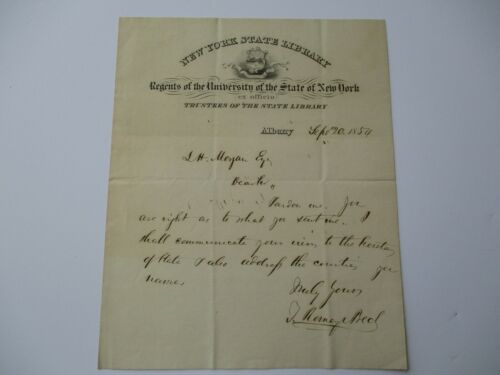 NEW YORK STATE LIBRARY
Regents of the University of the State of New York
ex officio
TRUSTEES OF THE STATE LIBRARY
Albany Sept 20. 1854
L H. Morgan Esq
Dear Sir,
Pardon me. You
are right as to what you sent me. I
shall communicate your views to the Secretary
of State & also address the counties you
name
Truly Yours
T. Romeyn Beck